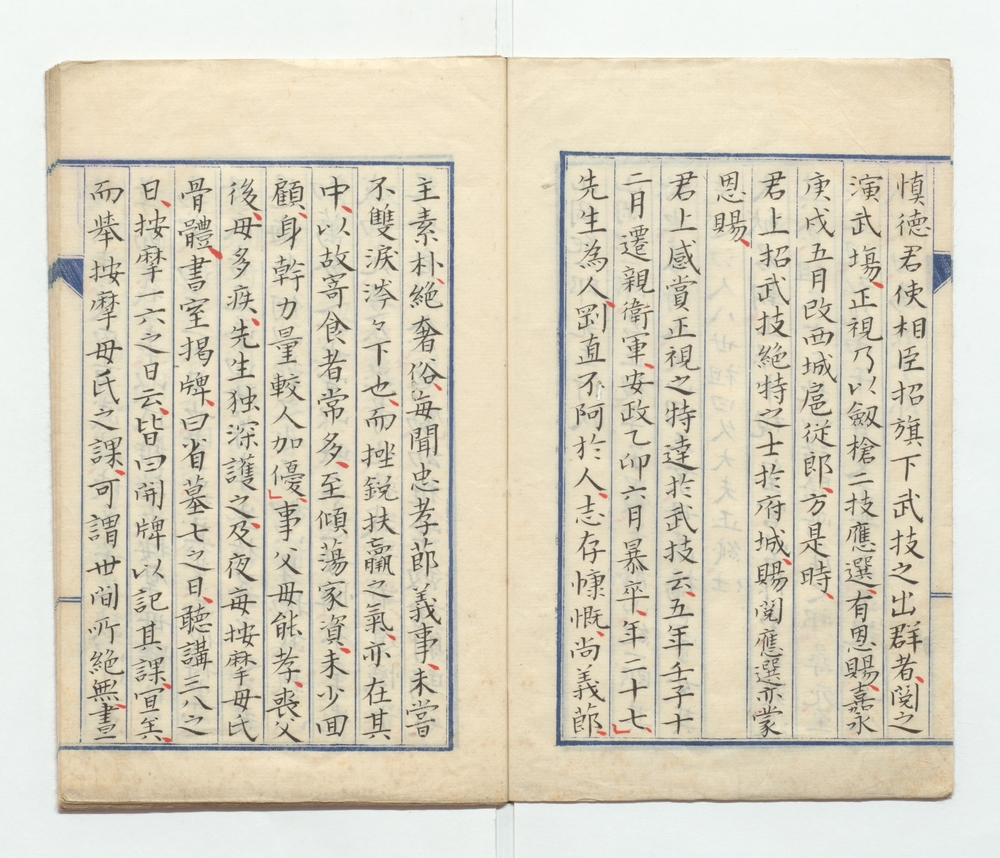 慎德君使相臣招旗下武技之出群者、閲之
演武塲、正視乃以劔槍二技應選、有恩賜、嘉永
庚戌五月改西城扈従郎、方是時、
君上招武技絶特之士於府城、賜閲應選亦蒙
恩賜、
君上感賞正視之特達於武技云、五年壬子十
二月遷親衛軍、安政乙卯六月暴卒、年二十七、」
先生為人、剛直不阿於人、志存慷慨、尚義節、
主素朴、絶奢俗、毎聞忠孝節義事、未嘗
不雙涙涔々下也、而挫鋭扶羸之氣、亦在其
中、以故寄食者常多、至傾蕩家資、未少回
顧、身幹力量較人加優、」事父母能孝、喪父
後、母多疾、先生独深護之、及夜毎按摩母氏
骨體、書室揭牌、曰省墓七之日、聽講三八之
日、按摩一六之日云、皆曰開牌以記其課、冝矣、
而挙按摩母氏之課、可謂世間所絶無、晝